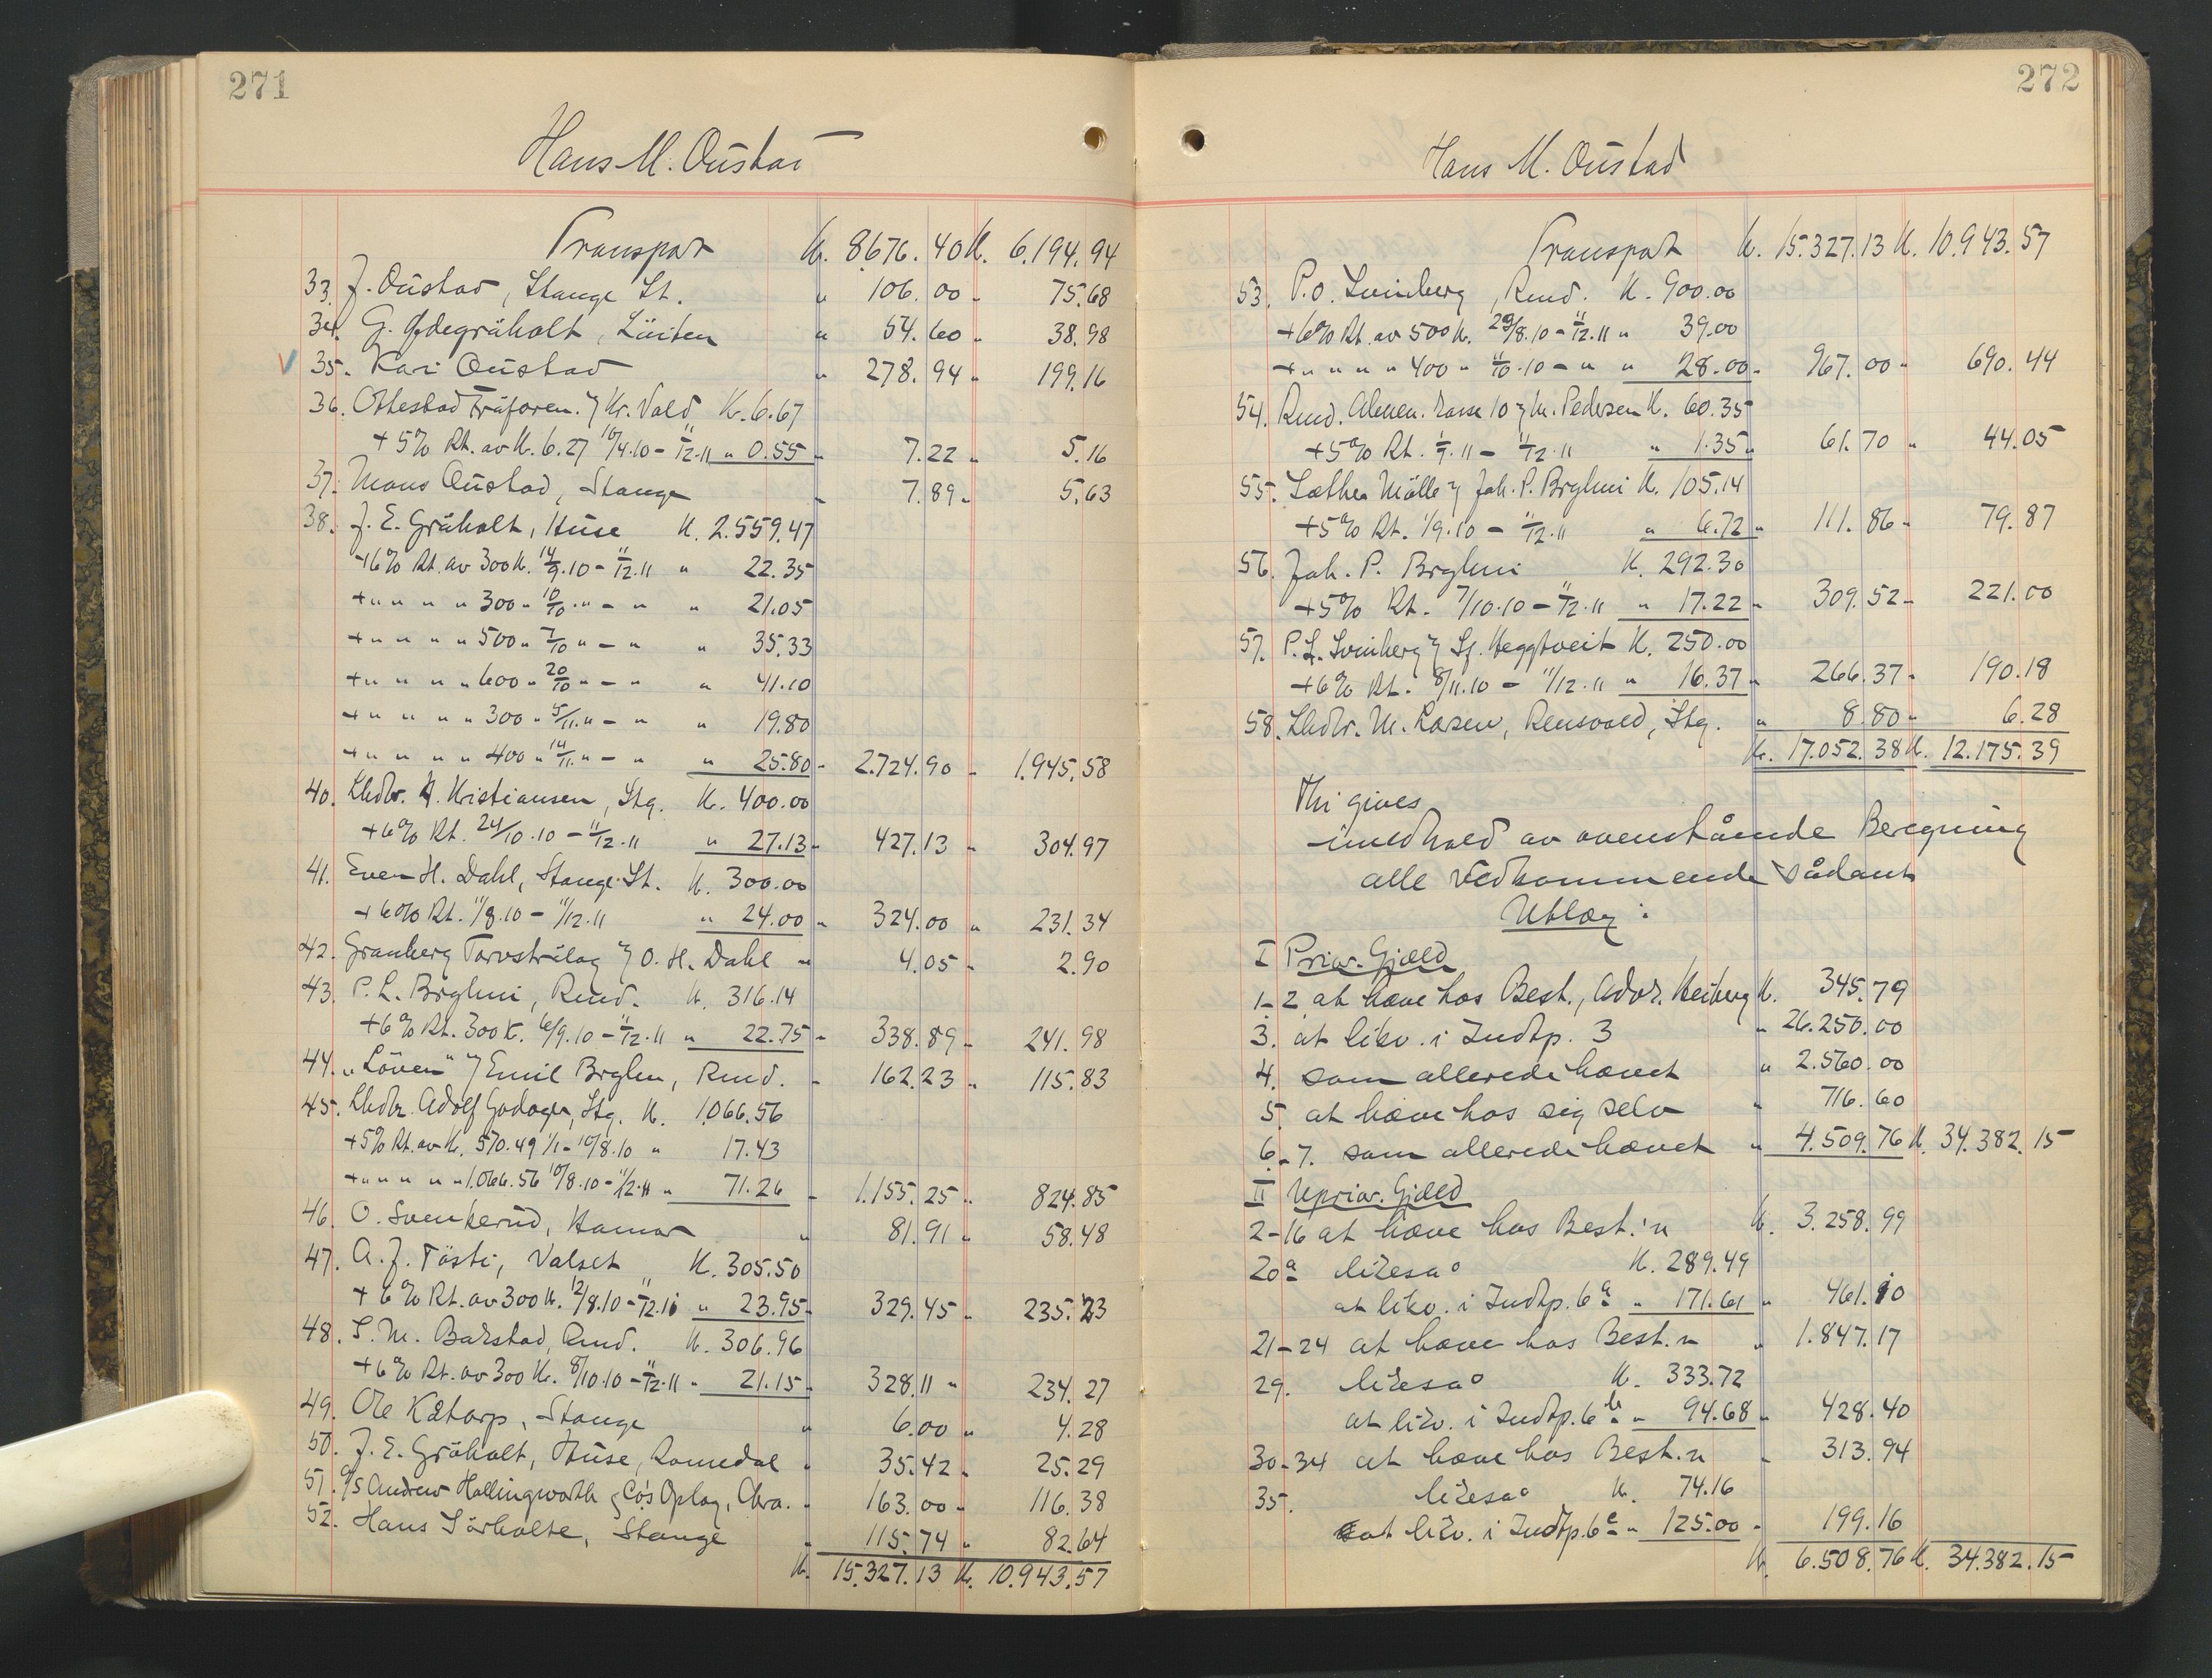 271
Hans M. Oustad
Transport K. 8676.40 K. 6.194.94
33. J. Oustad, Stange St. " 106.00 " 75.68
34. G. Ødegråholt, Löiten " 54.60 " 38.98
V 35. Kari Oustad " 278.94 " 199.16
36. Ottestad Fråforen. Kr. Vold K. 6.67
+ 5% Rt. av K. 6.27 16/4.10 - 11/12.11 " 0.55 " 7.22 " 5.16
37. Mons Oustad, Stange " 7.89 " 5.63
38. J. E. Gråholt, Huse K. 2.559.47
+6% Rt. av 300 K. 14/9.10 - 11/12.11 " 22.35
+ " " " " 300 " 10/10 . " - " " 21.05
+ " " " " 500 " 7/10 " - " " 35.33
+ " " " " 600 " 20/10 " - " " 41.10
+ " " " " 300 " 5/11. " - " " 19.80
+ " " " " 400 " 14/11. " - " " 25.80 " 2.724.90 " 1.945.58
40. Lhdlr. A. Kristiansen, Stg. K. 400.00
+6% Rt. 24/10.10 - 11/12.11 " 27.13 " 427.13 " 304.97
41. Even H. Dahl, Stange St. K. 300.00
+6% Rt. 11/8.10 - 11/12.11 " 24.00 " 324.00 " 231.34
42. Granberg Torvstrålag O. H. Dahl " 4.05 " 2.90
43. P. L. Bryhni, Rmd. K. 316.14
+6% Rt. 300 K. 6/9.10 - 11/12.11 " 22.75 " 338.89 " 241.98
44. "Löven" Emil Bryhn, Rmd. " 162.23 " 115.83
45. Lhdlr. Adolf Godager, Stg. K. 1.066.56
+5% Rt. av K. 570.49 1/1 - 10/8.10 " 17.43
+ " " " " 1.066.56 10/8.10 - 11/12.11 " 71.26 " 1.155.25 " 824.85
46. O. Svenkerud, Hamar " 81.91 " 58.48
47. A. J. Tösti, Valset K. 305.50
+ 6% Rt. av 300 K. 12/8.10 - 11/12.11 " 23.95 " 329.45 " 235.23
48. S. M. Bakstad, Rmd. K. 306.96
+6% Rt. av 300 K. 8/10.10 - 11/12.11 " 21.15 " 328.11 " 234.27
49. Ole Katorp, Stange " 6.00 " 4.28
50. J. E. Gråholt, Huse, Romedal " 35.42 " 25.29
51. A/S Andrew Hollingworth & Co's Oplag, Chra. " 163.00 " 116.38
52. Hans Sörholte, Stange " 115.74 " 82.64
K. 15.327.13 K. 10.943.57
272
Hans M. Oustad
Transport K. 15.327.13 K. 10.943.57
53. P.O. Svinberg, Rmd. K. 900.00
+6% Rt. av 500 K. 29/8.10 - 11/12.11 " 39.00
+ " " " " 400 " 11/10.10 - " " 28.00 " 967.00 " 690.44
54. Rmd. Almen. kasse M. Pedersen K. 60.35
+5% Rt. 1/7.11 - 11/12.11 " 1.35 " 61.70 " 44.05
55. Sæthen Mölle Joh. P. Bryhni K. 105.14
+5% Rt. 1/9.10 - 11/12.11 " 6.72 " 111.86 " 79.87
56. Joh. P. Bryhni K. 292.30
+5% Rt. 7/10.10 - 11/12.11 " 17.22 " 309.52 " 221.00
57. P. L. Svinberg Sf. Heggtveit K. 250.00
+6% Rt. 8/11.10 - 11/12.11 " 16.37 " 266.37 " 190.18
58. Lhdlr. M. Larsen, Rensvold, Stg. " 8.80 " 6.28
K. 17.052.38 K. 12.175.39
Thi gives
i medhold av ovenstående Beregning
alle Vedkommende sådant
Utlæg:
I Prior. Gjæld
1-2 at hæve hos Best., Advr. Heiberg K. 345.79
3. at likv. i Indtp. 3 " 26.250.00
4. som allerede hævet " 2.560.00
5. at hæve hos sig selv " 716.60
6-7. som allerede hævet " 4.509.76 K. 34.382.15
II Uprior. Gjæld
2-16 at hæve hos Best.'n K. 3.258.99
20a likeså K. 289.49
at likv. i Indtp. 6a " 171.61 " 461.10
21-24 at hæve hos Best.n " 1.847.17
29. likeså K. 333.72
at likv. i Indtp. 6b " 94.68 " 428.40
30-34 at hæve hos Best.n " 313.94
35. likeså K. 74.16
at likv. i Indtp. 6c " 125.00 " 199.16
K. 6.508.76 K. 34.382.15